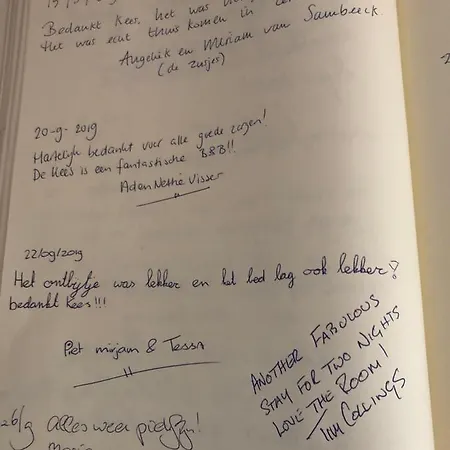 Bedankt Kees, het was
Het was echt thuis komen in
Angelick en Miriam van Sambeeck.
(de zusjes)
20-9-2019
Hartelijk bedankt voor alle goede zorgen!
De Kees is een fantastische B&B!!
Adan Nethie Visser
22/09/2019
Het ontbijtje was lekker en het bed lag ook lekker!
bedankt Kees!!!
Piet mirjam & Tessa
ANOTHER FABULOUS
STAY FOR TWO NIGHTS
LOVE THE ROOM!
TIM COLLINGS
26/9 Alles weer piekfijn!